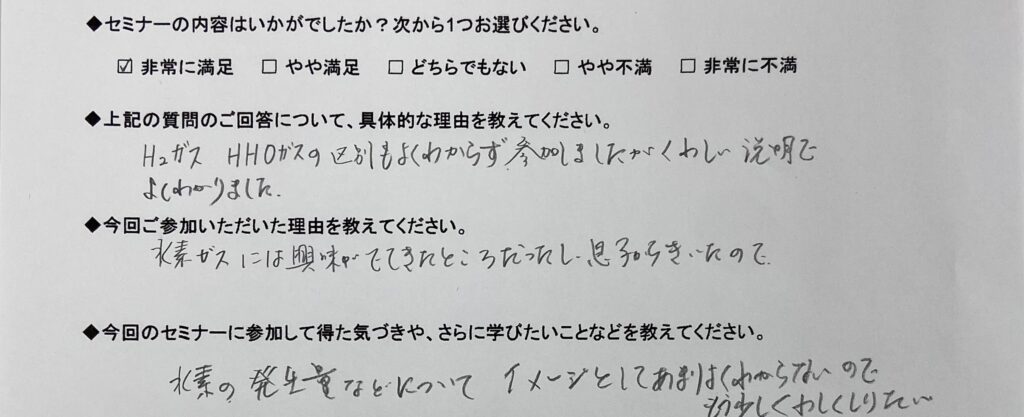 ◆セミナーの内容はいかがでしたか？次から1つお選びください。
☑ 非常に満足 □ やや満足 □ どちらでもない □ やや不満 □ 非常に不満
◆上記の質問のご回答について、具体的な理由を教えてください。
H2ガス HHOガスの区別もよくわからず参加しましたがくわしい説明で
よくわかりました.
◆今回ご参加いただいた理由を教えてください。
水素ガスには興味がでてきたところだったし 息子からきいたので
◆今回のセミナーに参加して得た気づきや、さらに学びたいことなどを教えてください。
水素の発生量などについて イメージとしてあまりよくわからないので
もう少しくわしくしりたい